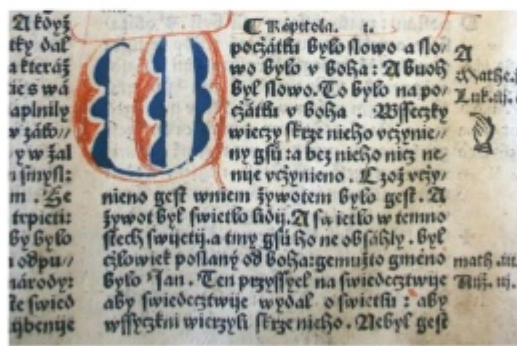 A když
tky dal
a kteráž
ſe s wá
aplnily
w záko//
y w žal
ſmyſl:
m . Se
trpieti:
by bylo
odpu//
národy:
ſte ſwied
ijbenije
Kápitola . i.
W
počátku bylo ſlowo a ſlo/
wo bylo v boha : A buoh
byl ſlowo. To bylo na po/
čžátku v boha . Wſſeczky
wieczy ſkrze nieho vczynie/
ny gſú : a bez nieho nicz ne/
nije vczynieno . Czož vczy/
nieno geſt wniem žywotem bylo geſt . A
žywot byl ſwietlo lidij. A ſwietlo w temno
ſtech ſwijetij. a tmy gſú ho ne obſáhly . byl
cžlowiek poſlaný od boha: gemužto gméno
bylo Jan . Ten przyſſyel na ſwiedecztwije
aby ſwiedecztwije wydal o ſwietlu : aby
wſſyczkni wierzyli ſkrze nieho . Nebyl geſt
A
Mathe.
Luk.
math . iij.